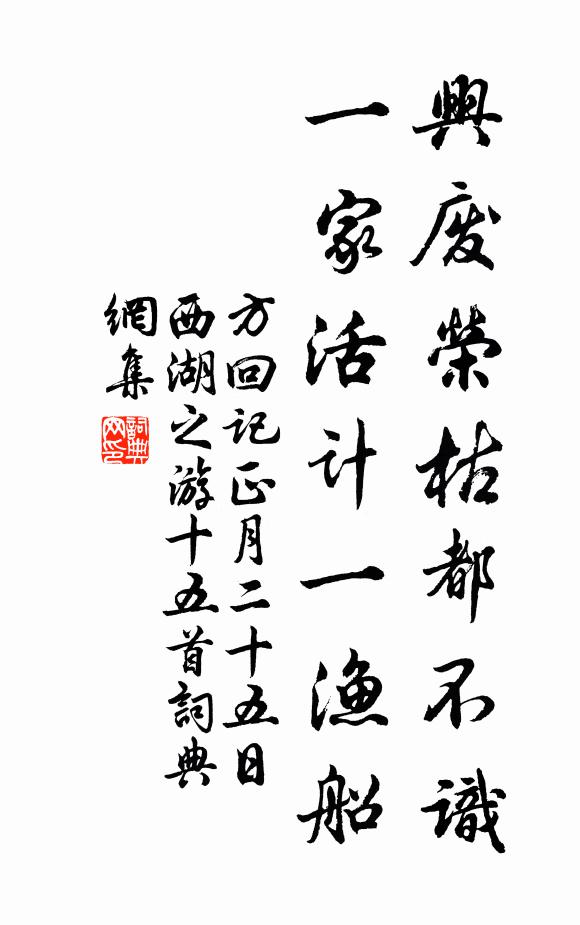 興废榮枯都不識
一家活计一漁船
方回记正月二十五日
西湖之游十五首詞典
網集
詞典
网印